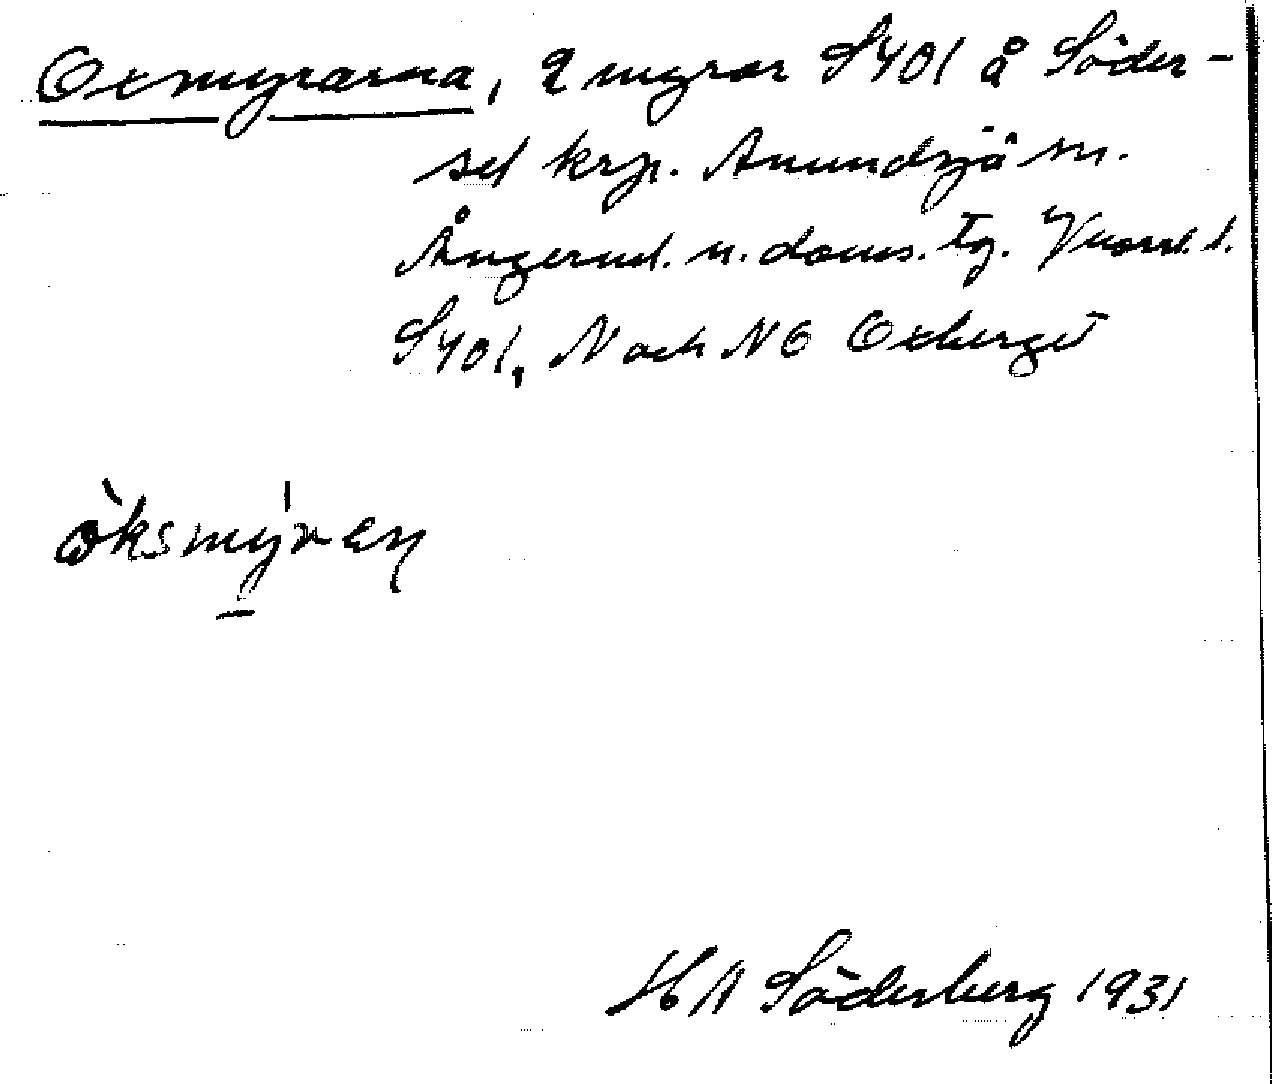 Oxmyrarna, 2 myrar S401 å Söder-
sel krp. Anundsjö sn.
Ångerml. n. doms. tg. Vnorrl. l.
S401, N och NO Oxberget
öksmýran
HA Söderberg 1931